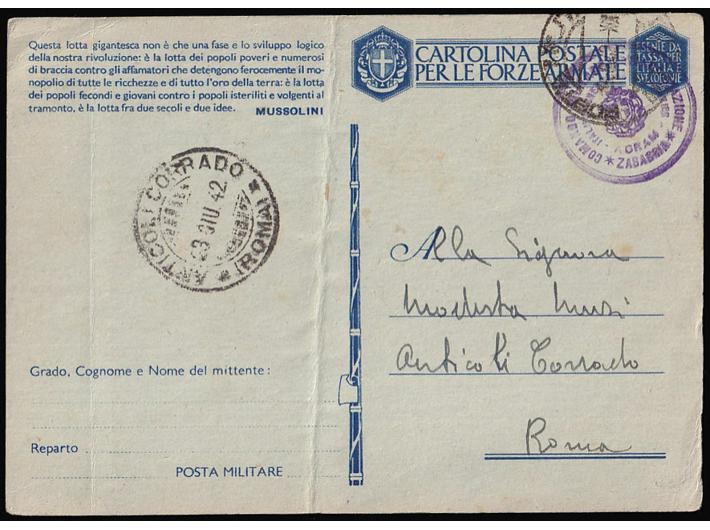 Questa lotta gigantesca non è che una fase e lo sviluppo logico
della nostra rivoluzione: è la lotta dei popoli poveri e numerosi
di braccia contro gli affamatori che detengono ferocemente il mo-
nopolio di tutte le ricchezze e di tutto l'oro della terra: è la lotta
dei popoli fecondi e giovani contro i popoli isteriliti e volgenti al
tramonto, è la lotta fra due secoli e due idee. MUSSOLINI
CARTOLINA POSTALE
PER LE FORZE ARMATE
ESENTE DA
TASSA PER
L'ITALIA
E SVE COLONIE
AGRAM
ZAGABRIA
ANTICOLI CORRADO * (ROMA) *
23 GIU 42
Alla Signora
Modesta
Anticoli Corrado
Roma
Grado, Cognome e Nome del mittente:
Reparto
POSTA MILITARE